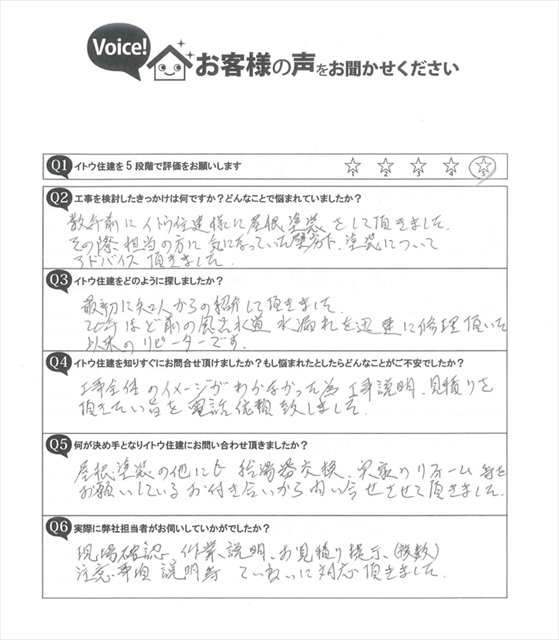 Voice!
お客様の声をお聞かせください
Q1 イトウ住建を5段階で評価をお願いします
1 2 3 4 5
Q2 工事を検討したきっかけは何ですか?どんなことで悩まれていましたか?
数年前にイトウ住建様に屋根塗装をして頂きました。
その際担当の方に気になっていた壁 塗装について
アドバイス頂きました。
Q3 イトウ住建をどのように探しましたか?
最初に知人からの紹介して頂きました。
20年ほど前の風呂水道水漏れを迅速に修理頂いた
以来のリピーターです。
Q4 イトウ住建を知りすぐにお問合せ頂けましたか?もし悩まれたとしたらどんなことがご不安でしたか?
工事全体のイメージがわかなかった為工事説明、見積りを
頂きたい旨を電話依頼致しました。
Q5 何が決め手となりイトウ住建にお問い合わせ頂きましたか?
屋根塗装の他にも給湯器交換、実家のリフォーム等を
お願いしているお付き合いから問い合せさせて頂きました。
Q6 実際に弊社担当者がお伺いしていかがでしたか?
現場確認、作業説明、お見積り提示、(複数)
注意事項説明等 ていねいに対応頂きました。